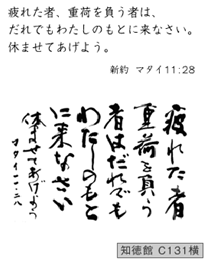 疲れた者、重荷を負う者は、
だれでもわたしのもとに来なさい。
休ませてあげよう。
新約 マタイ11:28
疲れた者
重荷を負う
者はだれでも
わたしのもと
に来なさい
休ませてあげよう
マタイ一一・二八
知徳館 C131横